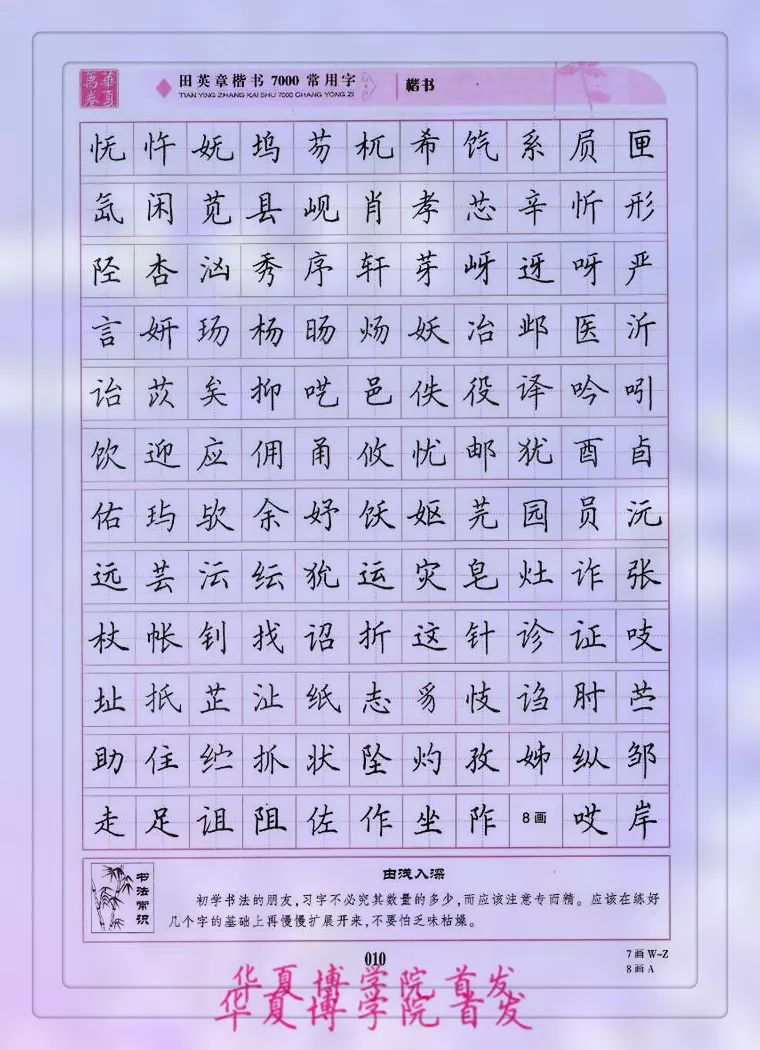 華夏萬卷
田英章楷书 7000 常用字
TIAN YING ZHANG KAI SHU 7000 CHANG YONG ZI
楷书
怃 忤 妩 坞 芴 杌 希 饩 系 屃 匣
氙 闲 苋 县 岘 肖 孝 芯 辛 忻 形
陉 杏 汹 秀 序 轩 芽 岈 迓 呀 严
言 妍 玚 杨 旸 炀 妖 冶 邺 医 沂
诒 苡 矣 抑 呓 邑 佚 役 译 吟 吲
饮 迎 应 佣 甬 攸 忧 邮 犹 酉 卣
佑 玙 欤 余 妤 饫 妪 芫 园 员 沅
远 芸 沄 纭 狁 运 灾 皂 灶 诈 张
杖 帐 钊 找 诏 折 这 针 诊 证 吱
址 抵 芷 沚 纸 志 豸 忮 诌 肘 苎
助 住 纻 抓 状 坠 灼 孜 姊 纵 邹
走 足 诅 阻 佐 作 坐 阼 8画 哎 岸
书法常识
由浅入深
初学书法的朋友,习字不必究其数量的多少,而应该注意专而精。应该在练好
几个字的基础上再慢慢扩展开来,不要怕乏味枯燥。
010
7画 W-Z
8画 A
华夏博学院 首发
华夏博学院 首发